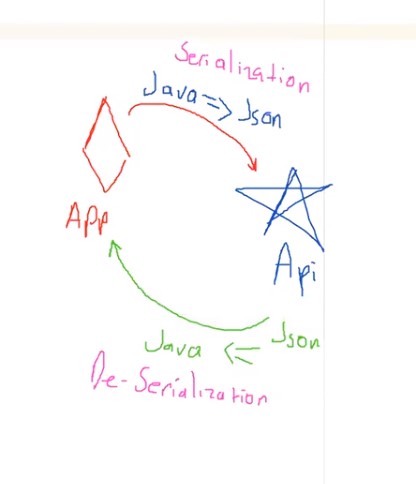 Serialization
Java => Json
App
Api
Json
Java <=
De-Serialization